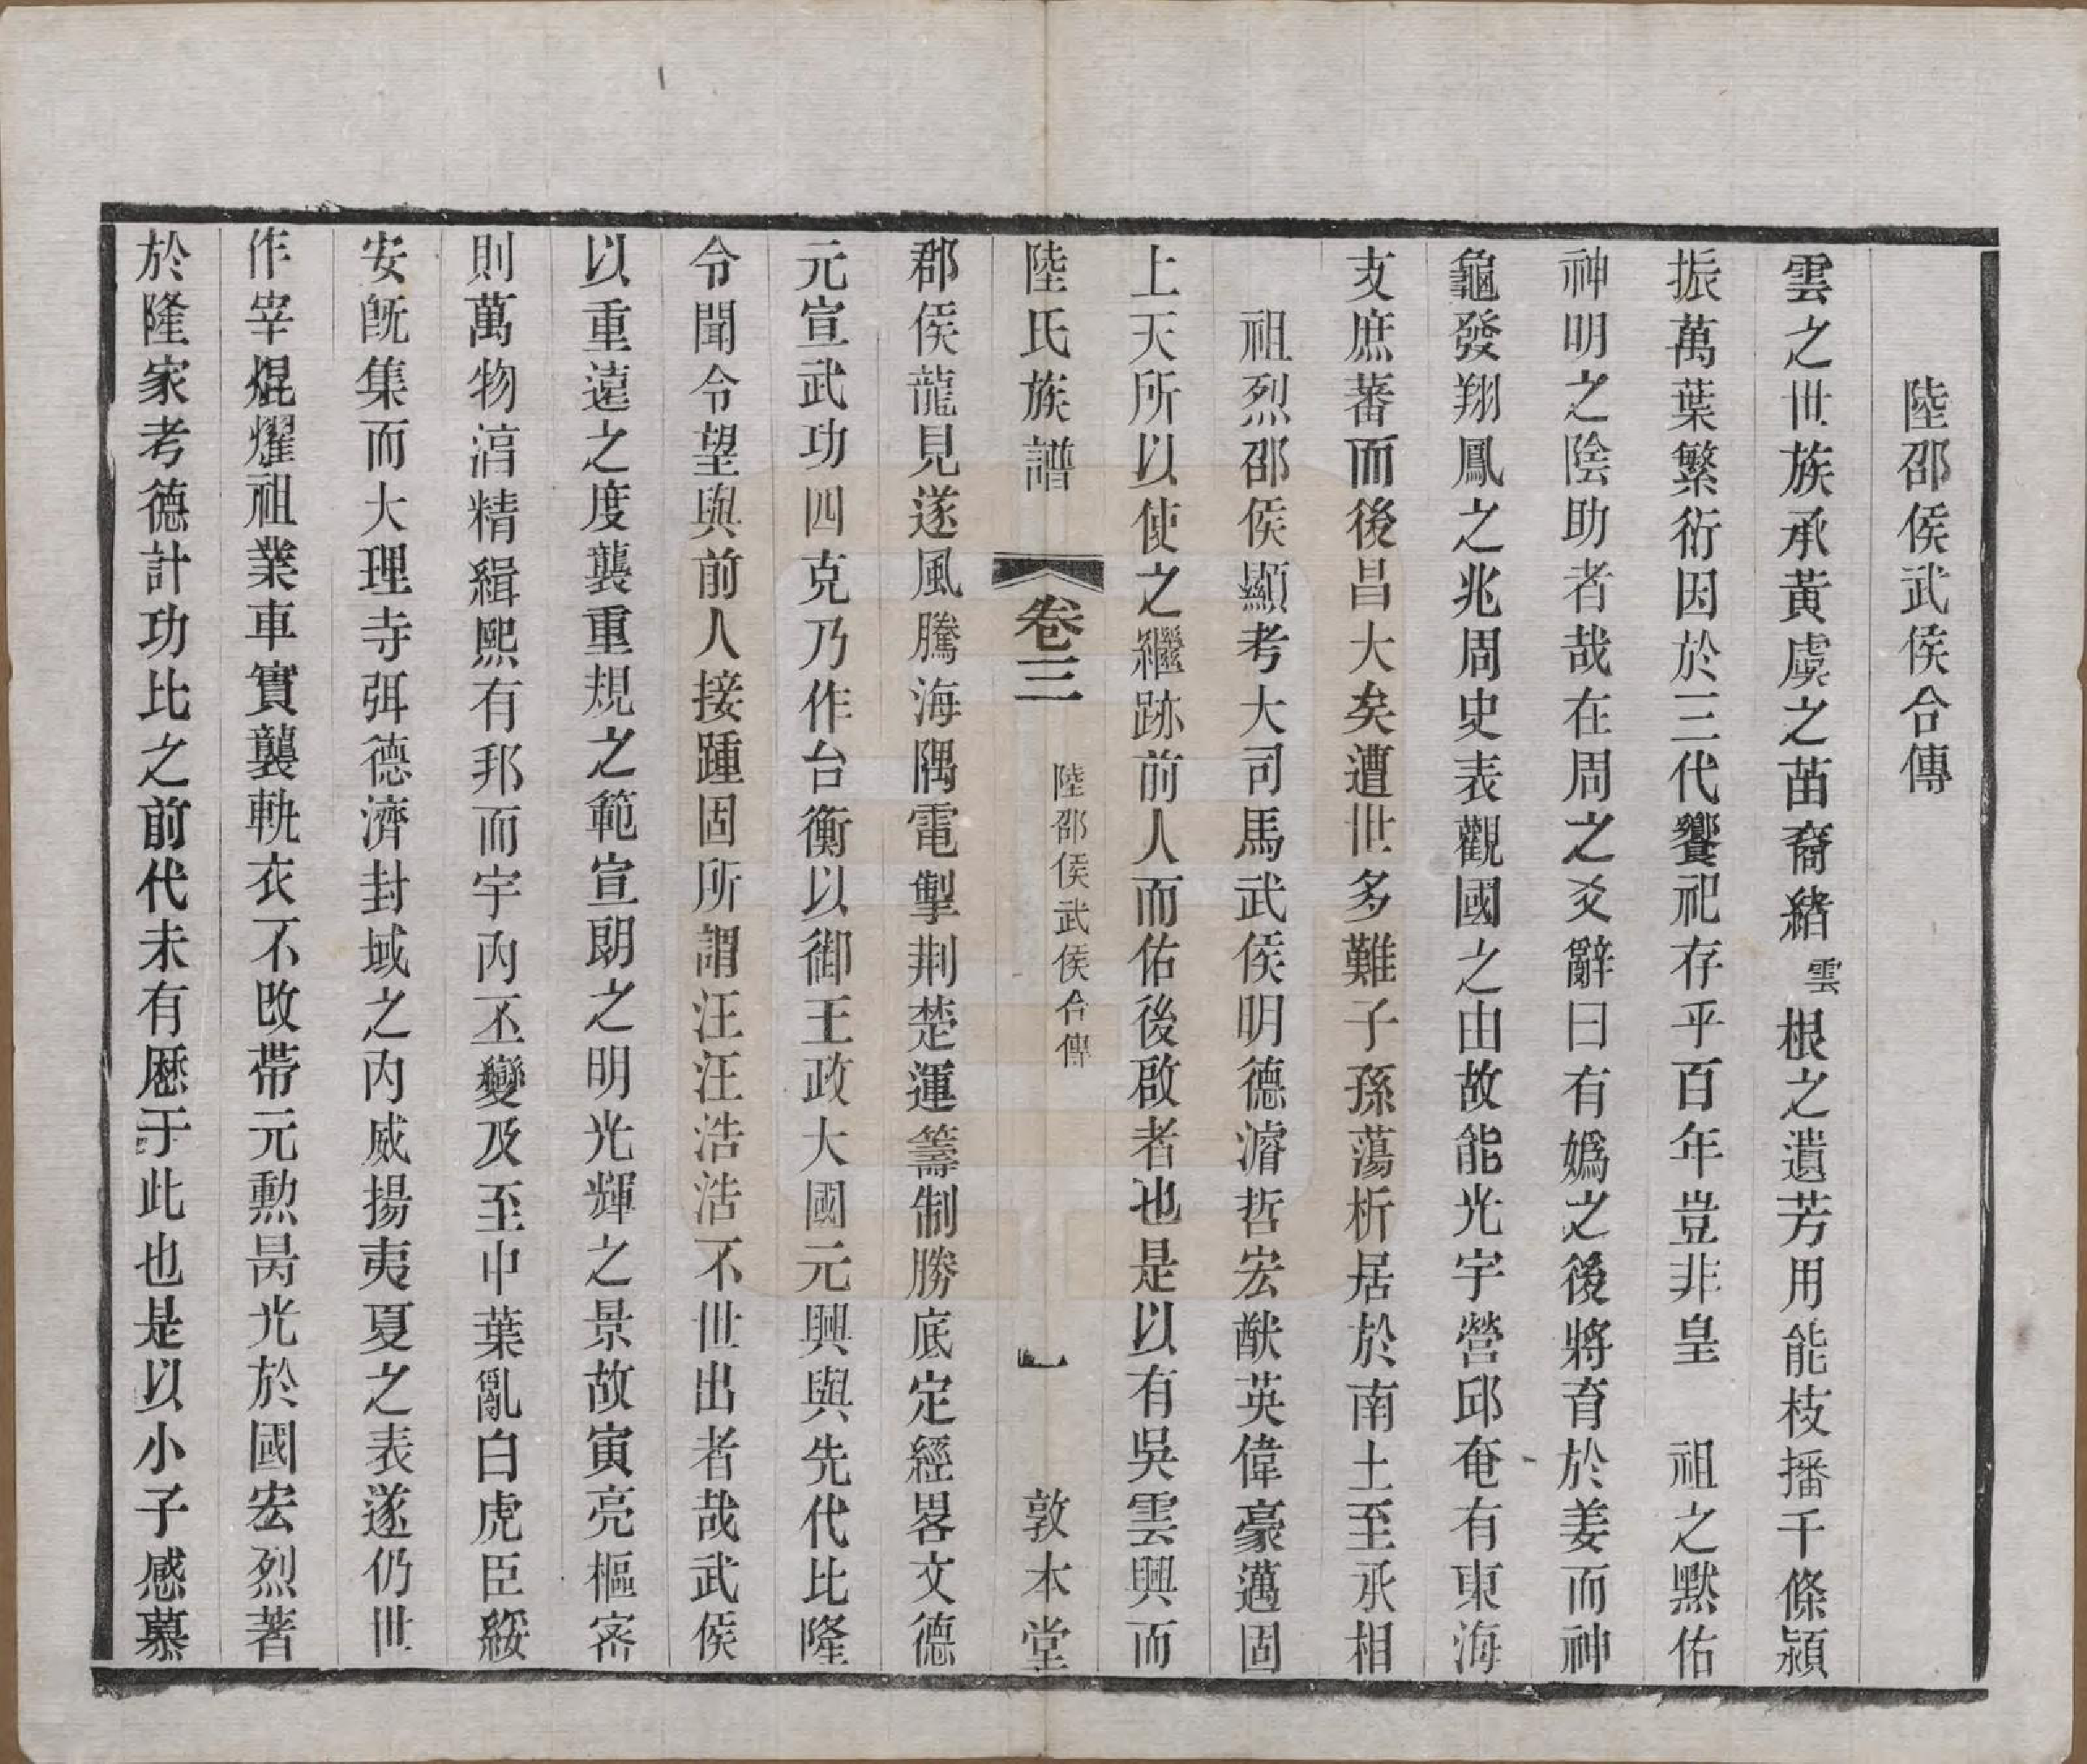 陸邵侯武侯合傳
雲之世族承黃虞之苗裔緒雲根之遺芳用能枝播千條潁
振萬葉繁衍因於三代饗祀存乎百年豈非皇　祖之黙佑
神明之陰助者哉在周之爻辭曰有嬀之後將育於姜而神
龜發翔鳳之兆周史表觀國之由故能光宇營邱奄有東海
支庶蕃而後昌大矣遭世多難子孫蕩析居於南土至承相
祖烈邵侯顯考大司馬武侯明德濬哲宏猷英偉豪邁固
上天所以使之繼跡前人而佑後啟者也是以有吳雲興而
陸氏族譜　卷三　陸邵侯武侯合傳　敦本堂
郡侯龍見遂風騰海隅電掣荆楚運籌制勝底定經畧文德
元宣武功四克乃作台衡以御王政大國元興與先代比隆
令聞令望與前人接踵固所謂汪汪浩浩不世出者哉武侯
以重遠之度襲重規之範宣朗之明光輝之景故寅亮樞宻
則萬物淯精緝熙有邦而宇内丕變及至中葉亂白虎臣綏
安旣集而大理寺弭德濟封域之内威揚夷夏之表遂仍世
作宰焜燿祖業車實襲軌衣不改帶元勲昺光於國宏烈著
於隆家考德計功比之前代未有歷于此也是以小子感慕